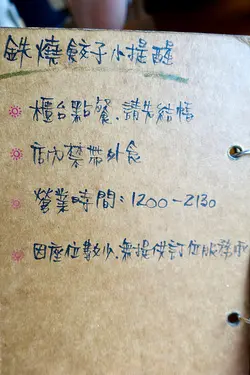 鉄燒餃子小提醒
櫃台點餐、請先結帳
店內禁帶外食
營業時間：1200-2130
因座位數少、無提供訂位服務